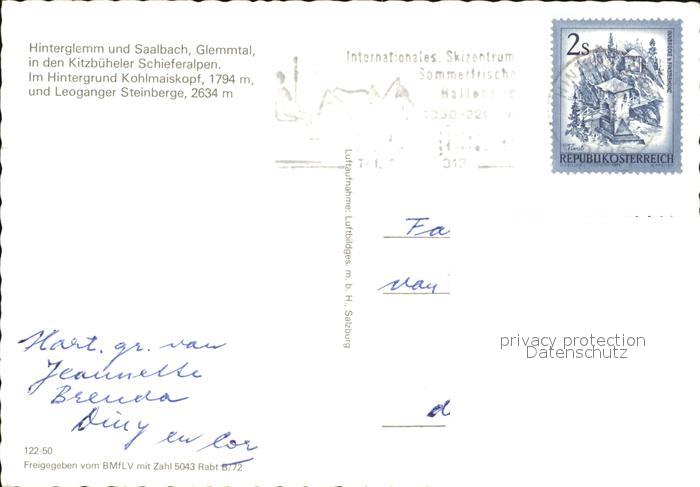 Hinterglemm und Saalbach, Glemmtal,
in den Kitzbüheler Schieferalpen.
Im Hintergrund Kohlmaiskopf, 1794 m,
und Leoganger Steinberge, 2634 m
Internationales. Skizentrum
Sommerfrische
2s
REPUBLIK ÖSTERREICH
Luftaufnahme: Luftbildges. m. b. H., Salzburg
Fa
van
d
privacy protection
Datenschutz
Hart. gr. van
Jeannette
Brenda
Diny en Cor
122-50
Freigegeben vom BMfLV mit Zahl 5043 Rabt B/72